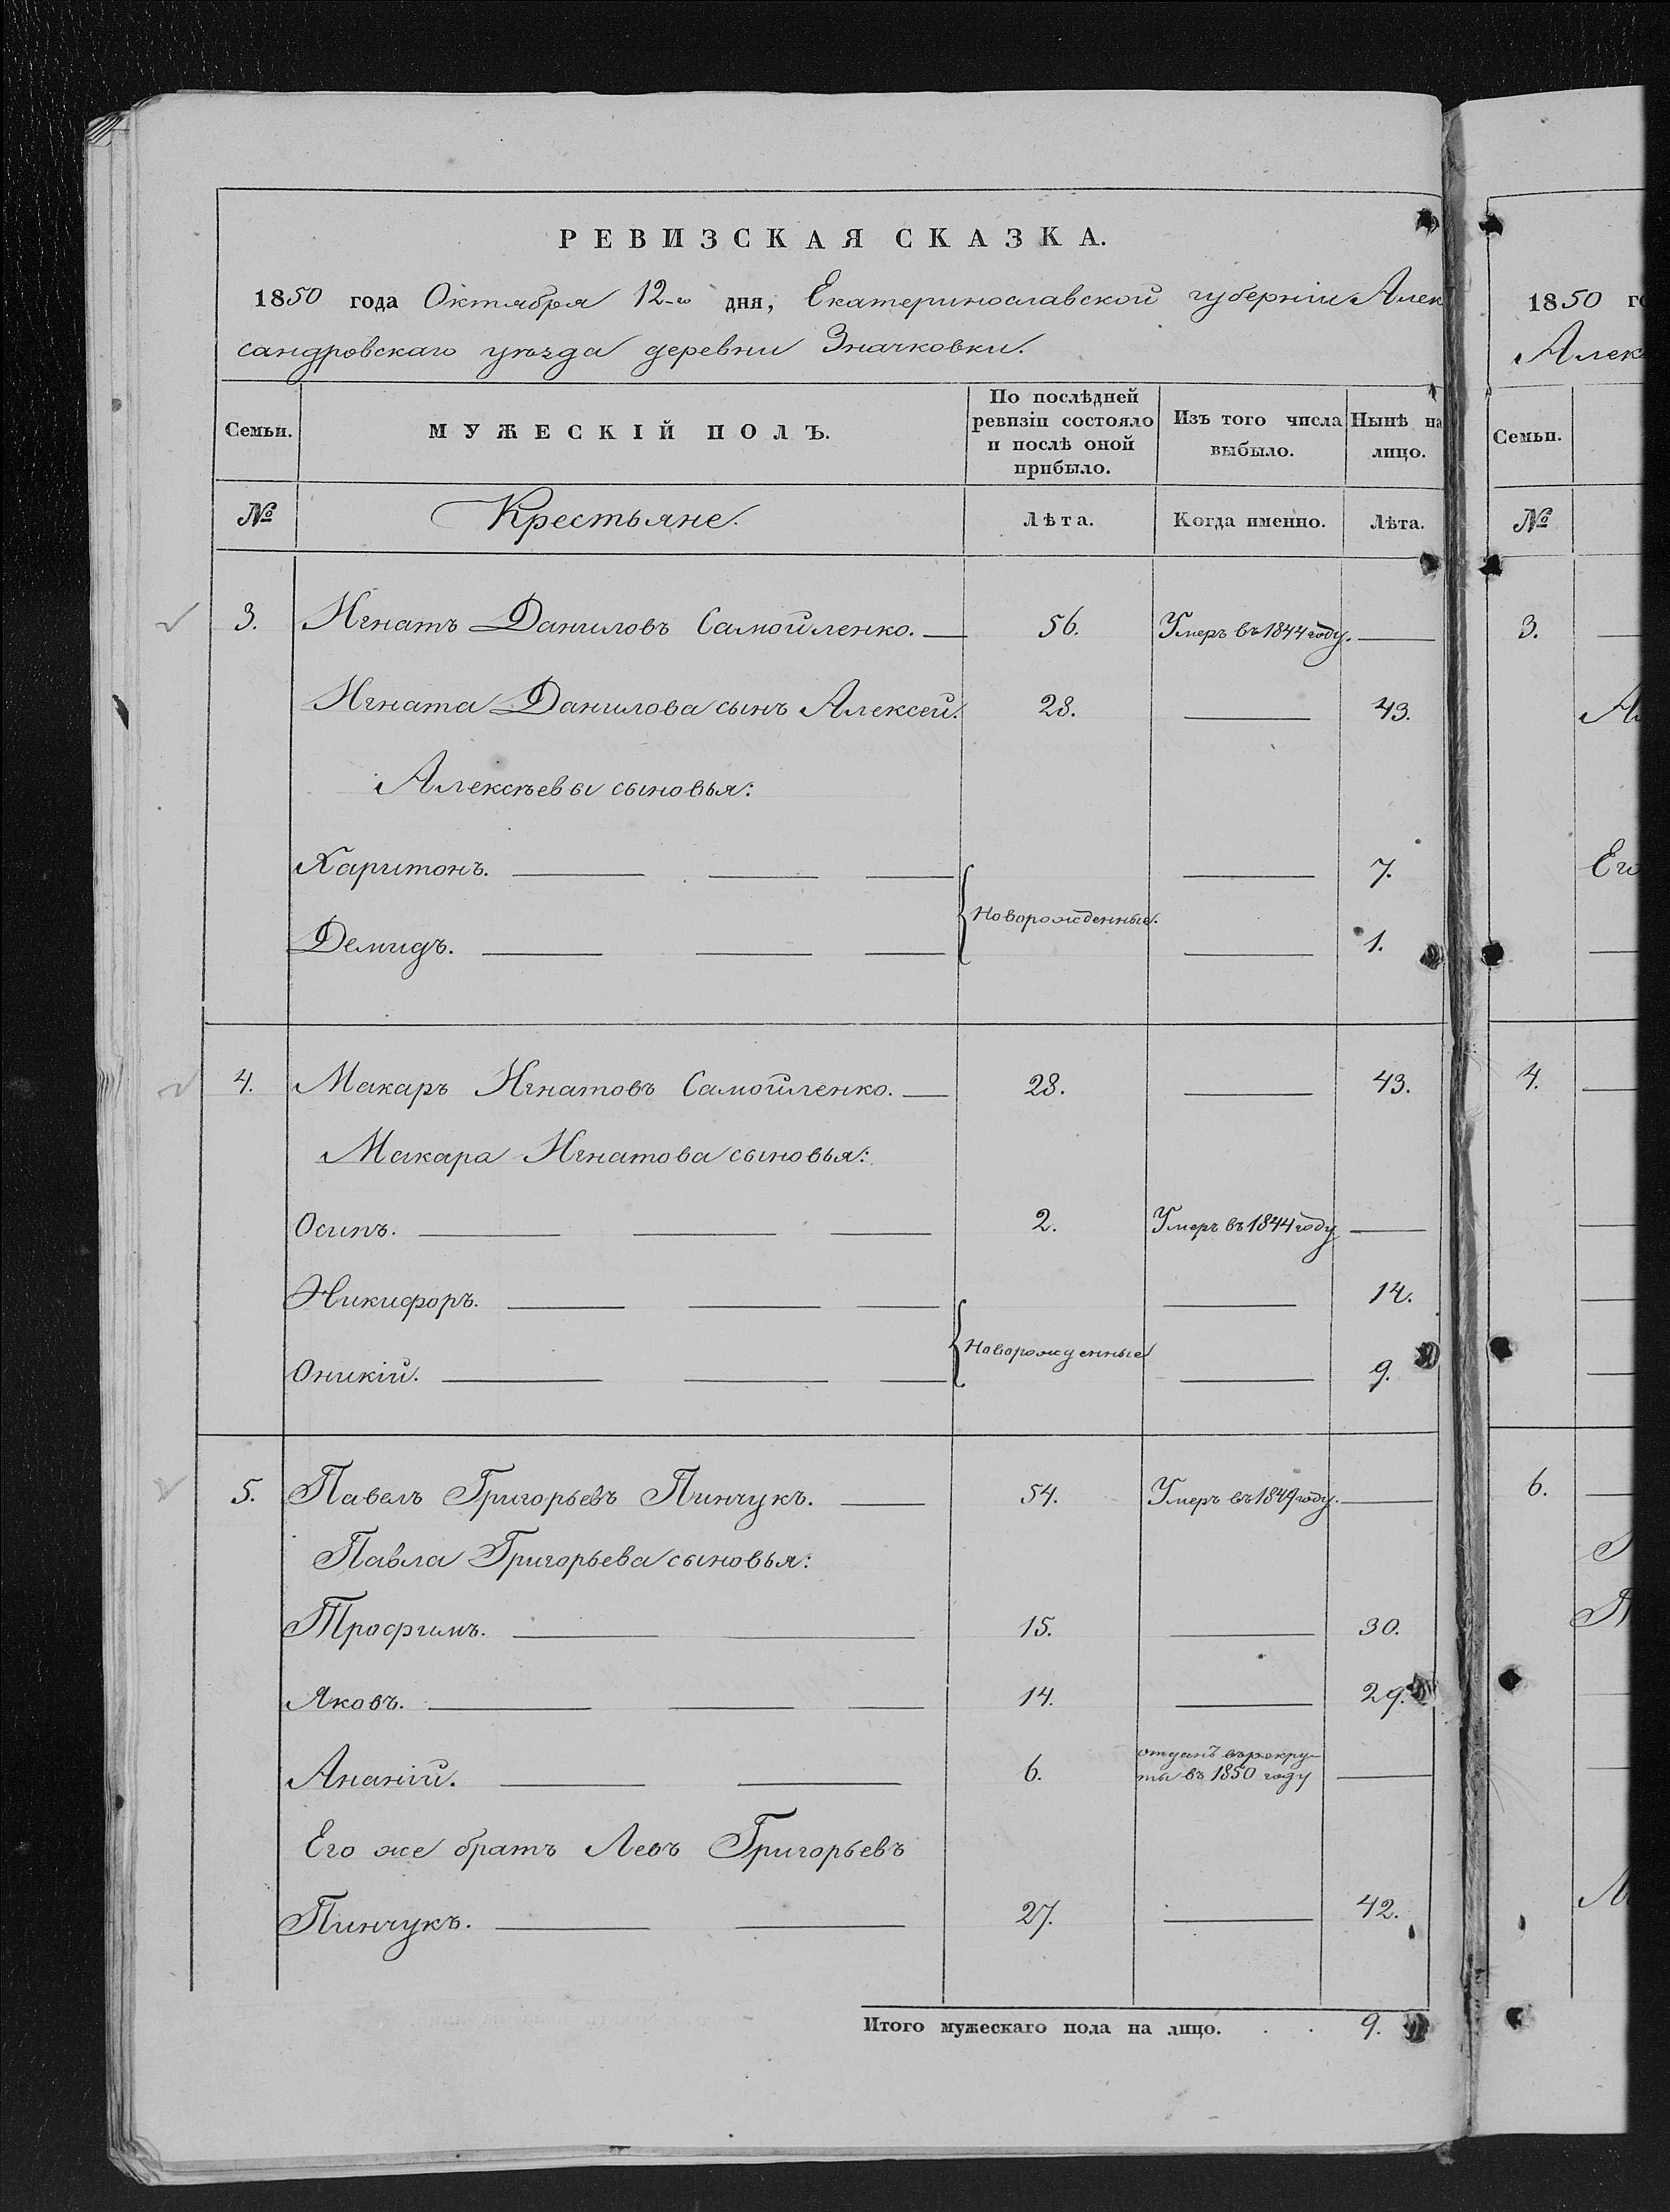 РЕВИЗСКАЯ СКАЗКА.
1850 года Октября 12-го дня, Екатеринославской губерніи Алек
сандровскаго уѣзда деревни Значковки.
Семьи.
МУЖЕСКІЙ ПОЛЪ.
По послѣдней ревизіи состояло и послѣ оной прибыло.
Изъ того числа выбыло.
Нынѣ на лицо.
№ Крестьяне. Лѣта. Когда именно. Лѣта.
3. Игнатъ Даниловъ Самойленко. 56. Умеръ въ 1844 году.
Игната Данилова сынъ Алексей. 28. 43.
Алексѣевы сыновья:
Харитонъ. 7.
Новорожденные.
Демидъ. 1.
4. Макаръ Игнатовъ Самойленко. 28. 43.
Макара Игнатова сыновья:
Осипъ. 2. Умеръ въ 1844 году
Никифоръ. 14.
Новорожденные
Оникій. 9.
5. Павелъ Григорьевъ Пинчукъ. 54. Умеръ въ 1849 году.
Павла Григорьева сыновья:
Трофимъ. 15. 30.
Яковъ. 14. 29.
Ананій. 6. отданъ въ рекру-
ты въ 1850 году
Его же братъ Левъ Григорьевъ
Пинчукъ. 27. 42.
Итого мужескаго пола на лицо. . . 9.
1850 го
Алекс
Семьи.
№
3.
Ал
Его
4.
6.